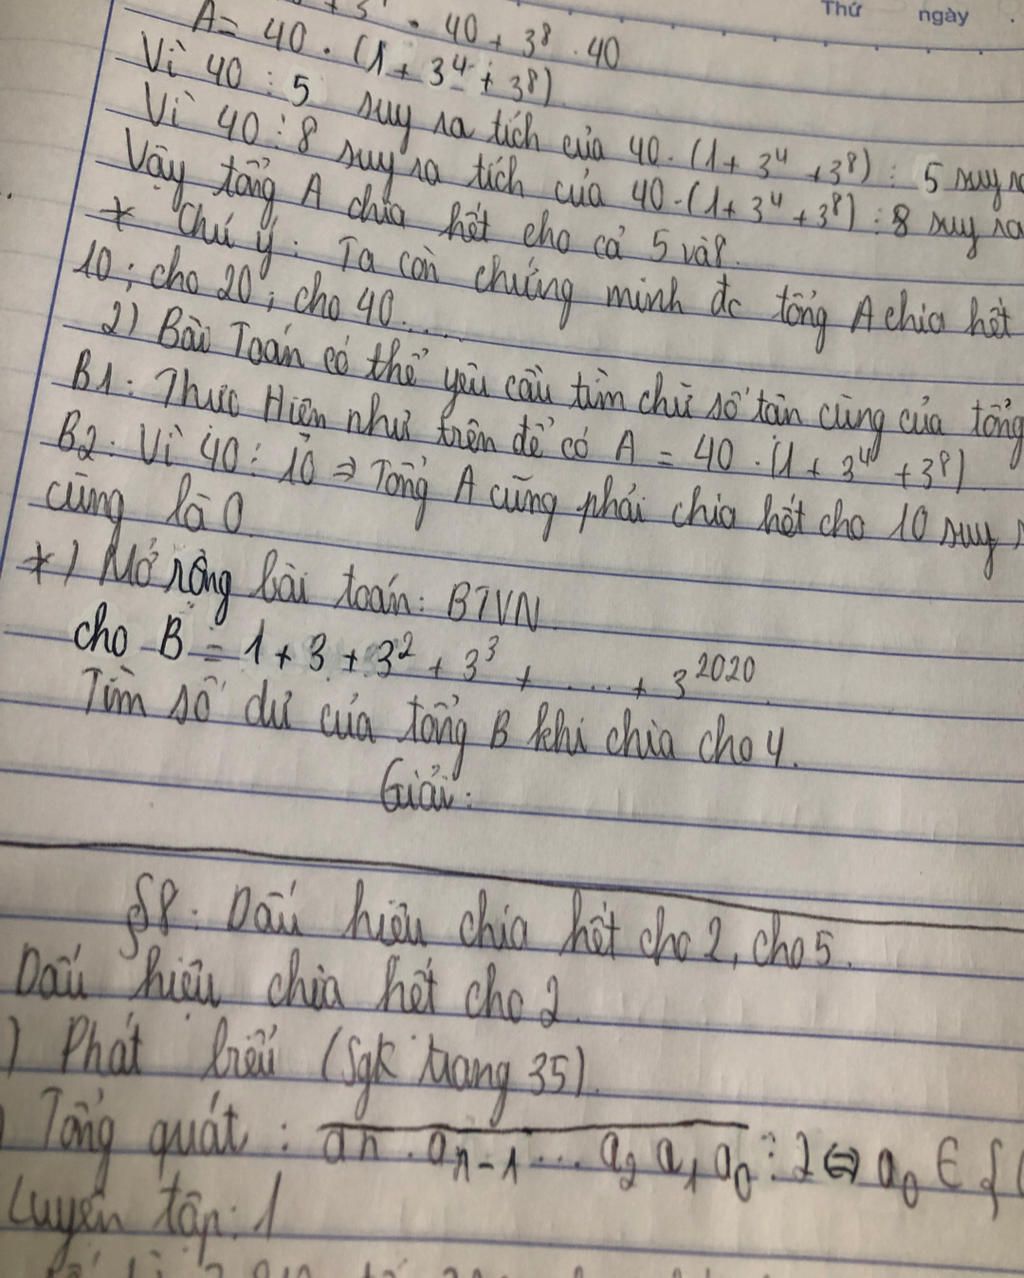 Thứ ngày
+ 3 . 40 + 3⁸ . 40
A = 40 . (1 + 3⁴ + 3⁸)
Vì 40 ⋮ 5 suy ra tích của 40 . (1 + 3⁴ + 3⁸) ⋮ 5 suy ra
Vì 40 ⋮ 8 suy ra tích của 40 . (1 + 3⁴ + 3⁸) ⋮ 8 suy ra
Vậy tổng A chia hết cho cả 5 và 8.
* Chú ý : Ta còn chứng minh đc tổng A chia hết
10 ; cho 20 ; cho 40....
2) Bài Toán có thể yêu cầu tìm chữ số tận cùng của tổng
B1 : Thực Hiện như trên để có A = 40 . (1 + 3⁴ + 3⁸)
B2 : Vì 40 ⋮ 10 => Tổng A cũng phải chia hết cho 10 suy
cùng là 0
*) Mở rộng bài toán : BTVN
cho B = 1 + 3 + 3² + 3³ + .... + 3²⁰²⁰
Tìm số dư của tổng B khi chia cho 4.
Giải :
§8 : Dấu hiệu chia hết cho 2, cho 5.
Dấu hiệu chia hết cho 2
) Phát biểu (Sgk trang 35).
) Tổng quát : an . aₙ₋₁ ... a₂ a₁ a₀ ⋮ 2 ⇔ a₀ ∈ {
Luyện tập : 1